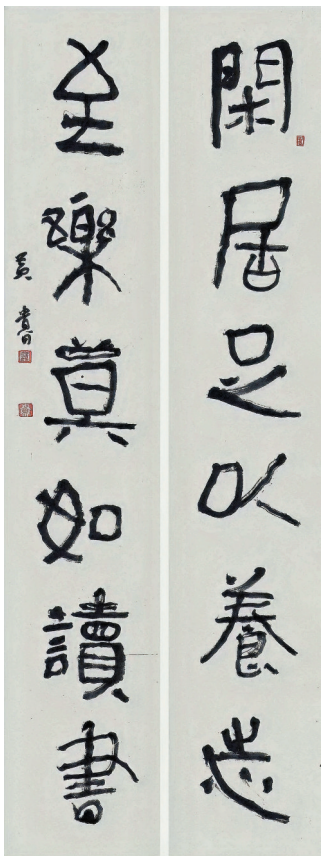 閑居足以養志
至樂莫如讀書
黃賓